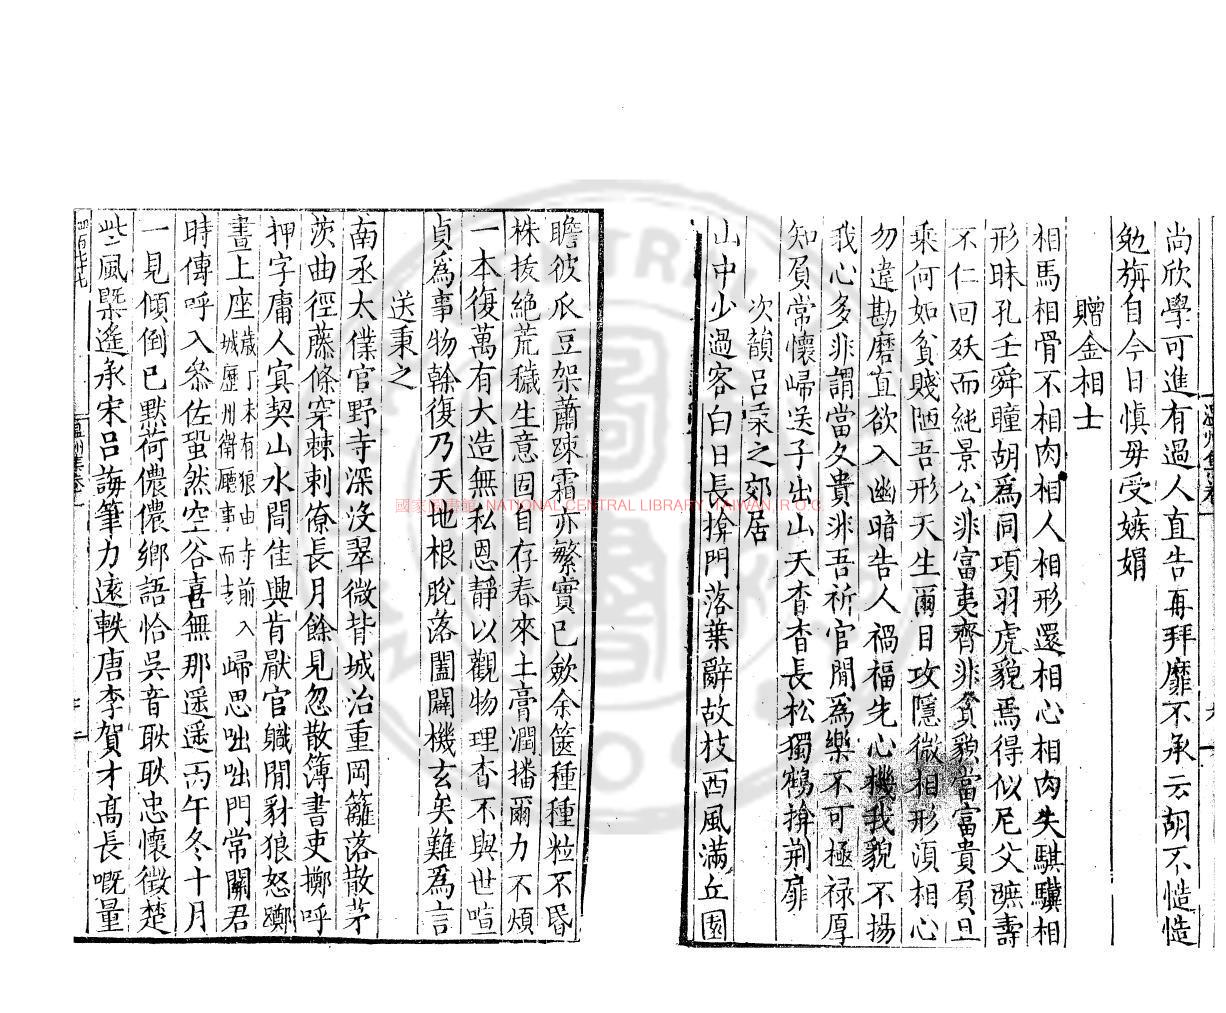 尚欣學可進有過人直告再拜靡不承云胡不慥慥
勉旃自今日慎毋受嫉娟
贈金相士
相馬相骨不相肉相人相形還相心相肉失騏驥相
形昧孔壬舜瞳胡爲同項羽虎貌焉得似尼父嫬壽
不仁回殀而純景公非富夷齊非貧貌當富貴貧且
乘何如貧賤陋吾形天生爾目攻隱微相形湏相心
勿違勘磨直欲入幽暗告人禍福先心機我貌不揚
我心多非謂當久貴非吾祈官閒爲樂不可極禄厚
知貧常懷歸送子出山天杳杳長松獨鶴揜荆扉
次韻吕秉之郊居
山中少過客白日長揜門落葉辭故枝西風滿丘園
瞻彼瓜豆架蕭踈霜亦繁實已斂余篋種種粒不昏
株拔絶荒穢生意因自存春來土膏潤播爾力不煩
一本復萬有大造無私恩靜以觀物理杳不與世喧
貞爲事物榦復乃天地根脱落闔闢機玄矣難爲言
送秉之
南丞太僕官野寺深没翠微背城治重岡籬落散茅
茨曲徑藤條穿棘刺僚長月餘見忽散簿書吏擲呼
押字庸人寘契山水間佳興肯厭官軄閒豺狼怒躑
晝上座歲丁未有狼由寺前入城歷州衛廳事而去歸思咄咄門常關君
時傳呼入叅佐蛩然空谷喜無那遥遥丙午冬十月
一見傾倒已默荷儂儂鄉語恰吳音耿耿忠懷徵楚
些風槩遙承宋吕誨筆力遠軼唐李賀才髙長嘅量